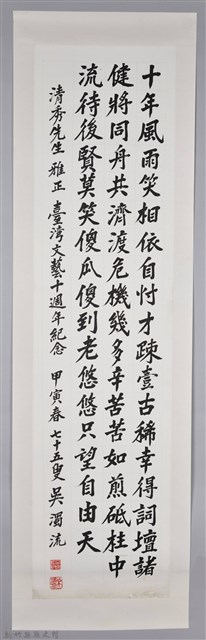 十年風雨笑相依自忖才疎壹古稀幸得詞壇諸
健將同舟共濟渡危機幾多辛苦苦如煎砥柱中
流待後賢莫笑傻瓜傻到老悠悠只望自由天
清秀先生雅正 臺灣文藝十週年紀念 甲寅春 七十五叟 吳濁流